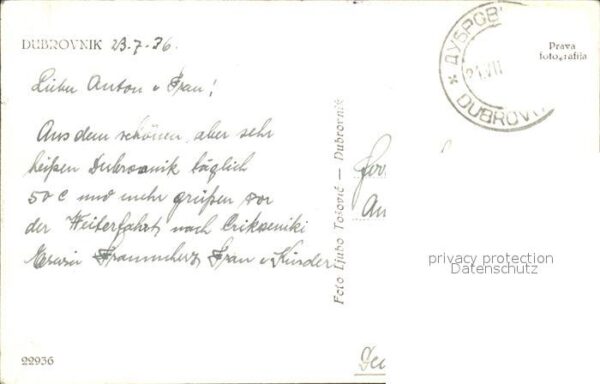 DUBROVNIK 23.7.36.
Lieber Anton u Frau!
Aus dem schönen, aber sehr
heißen Dubrovnik täglich
50 C und mehr grüßen vor
der Weiterfahrt nach Crikveniki
Frau u Kinder
22936
Foto Ljubo Tošović — Dubrovnik
ДУБРОВ
21.VII
DUBROVN
Prava
fotografija
An
privacy protection
Datenschutz